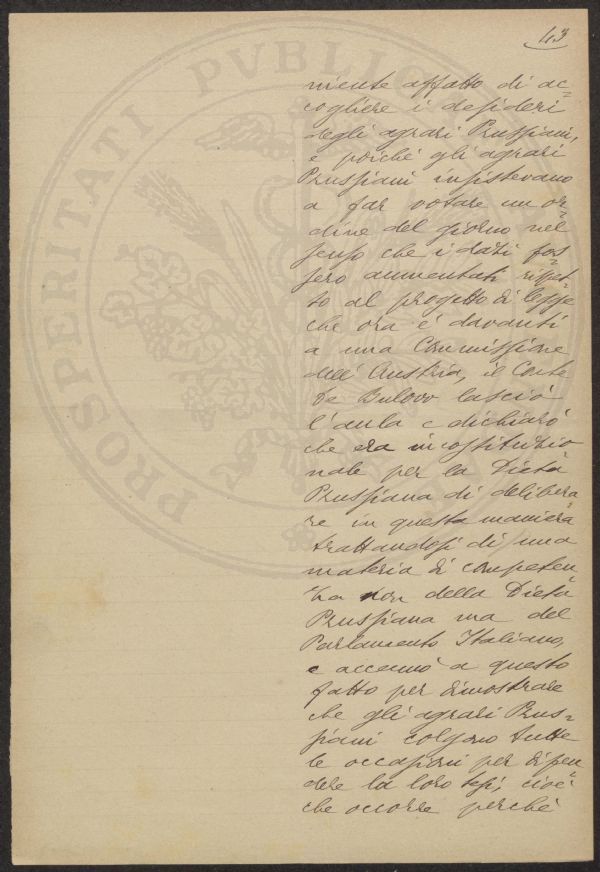 43
niente affatto di ac=
cogliere i desideri
degli agrari Prussiani,
e poichè gli agrari
Prussiani insistevano
a far votare un or=
dine del giorno nel
senso che i dazi fos=
sero aumentati rispet=
to al progetto di legge
che ora è davanti
a una Commissione
dell'Austria, il Conte
De Bulow lasciò
l'aula e dichiarò
che era incostituzio
nale per la Dieta
Prussiana di delibera=
re in questa maniera
trattandosi di una
materia di competen
za non della Dieta
Prussiana ma del
Parlamento Italiano,
e accennò a questo
fatto per dimostrare
che gli agrari Prus=
siani colgono tutte
le occasioni per difen
dere la loro tesi, cioè
che occorre perchè
PROSPERITATI PVBLICA